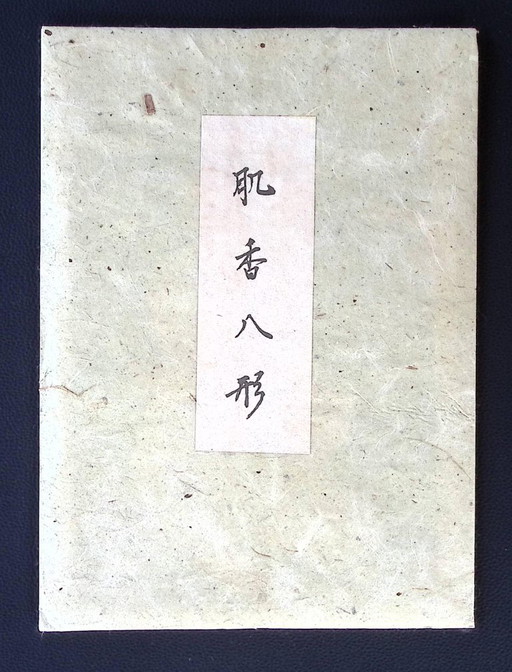 肌香八形